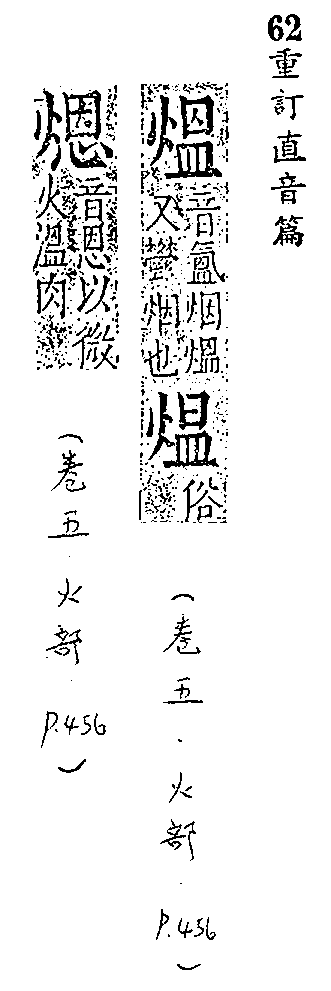 62重訂直音篇
熅音氳烟熅又鬱烟也煴俗
（卷五．火部．P.456）
㷙音恩以微火溫肉
（卷五．火部．P.456）